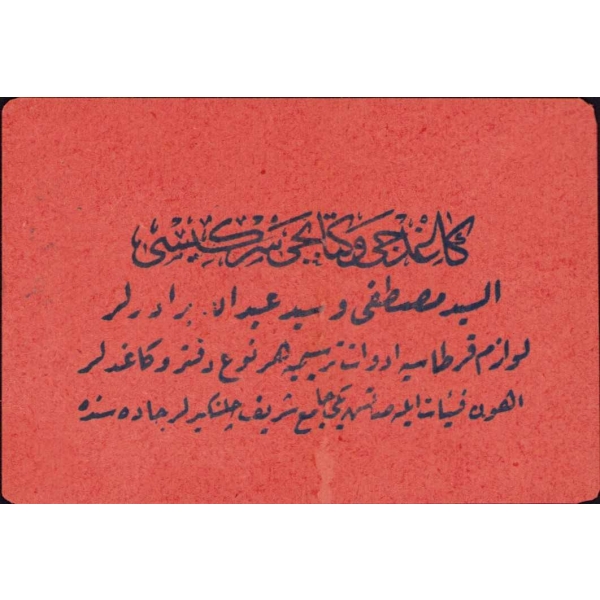 كاغدجی و كتابجی شركتی
السید مصطفی و سید عبدالله برادرلر
لوازم قرطاسیه ادوات ترسیمیه هر نوع دفتر و كاغدلر
اهون فیئات ایله صاتیلیر یكی جامع شریف چلنكیرلر جاده سنده